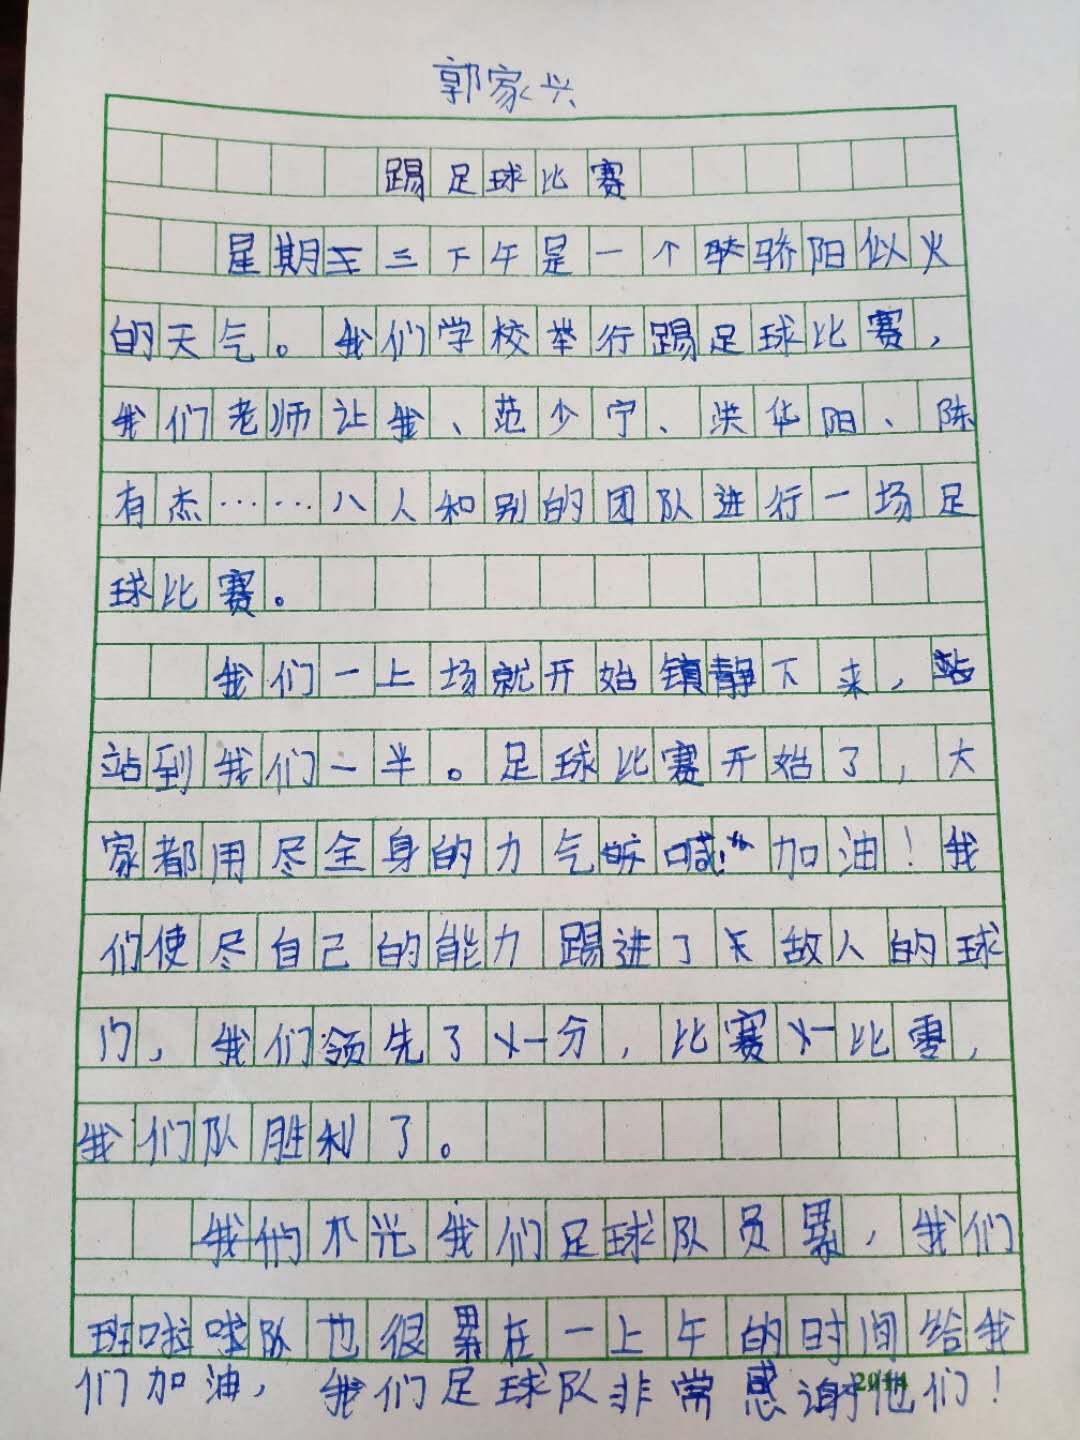 郭家兴
踢足球比赛
星期三下午是一个骄阳似火
的天气。我们学校举行踢足球比赛，
我们老师让我、范少宁、洪华阳、陈
有杰……八人和别的团队进行一场足
球比赛。
我们一上场就开始镇静下来，
站到我们一半。足球比赛开始了，大
家都用尽全身的力气喊“加油！我
们使尽自己的能力踢进了敌人的球
门，我们领先了一分，比赛一比零，
我们队胜利了。
不光我们足球队员累，我们
班啦啦队也很累在一上午的时间给我
们加油，我们足球队非常感谢他们！